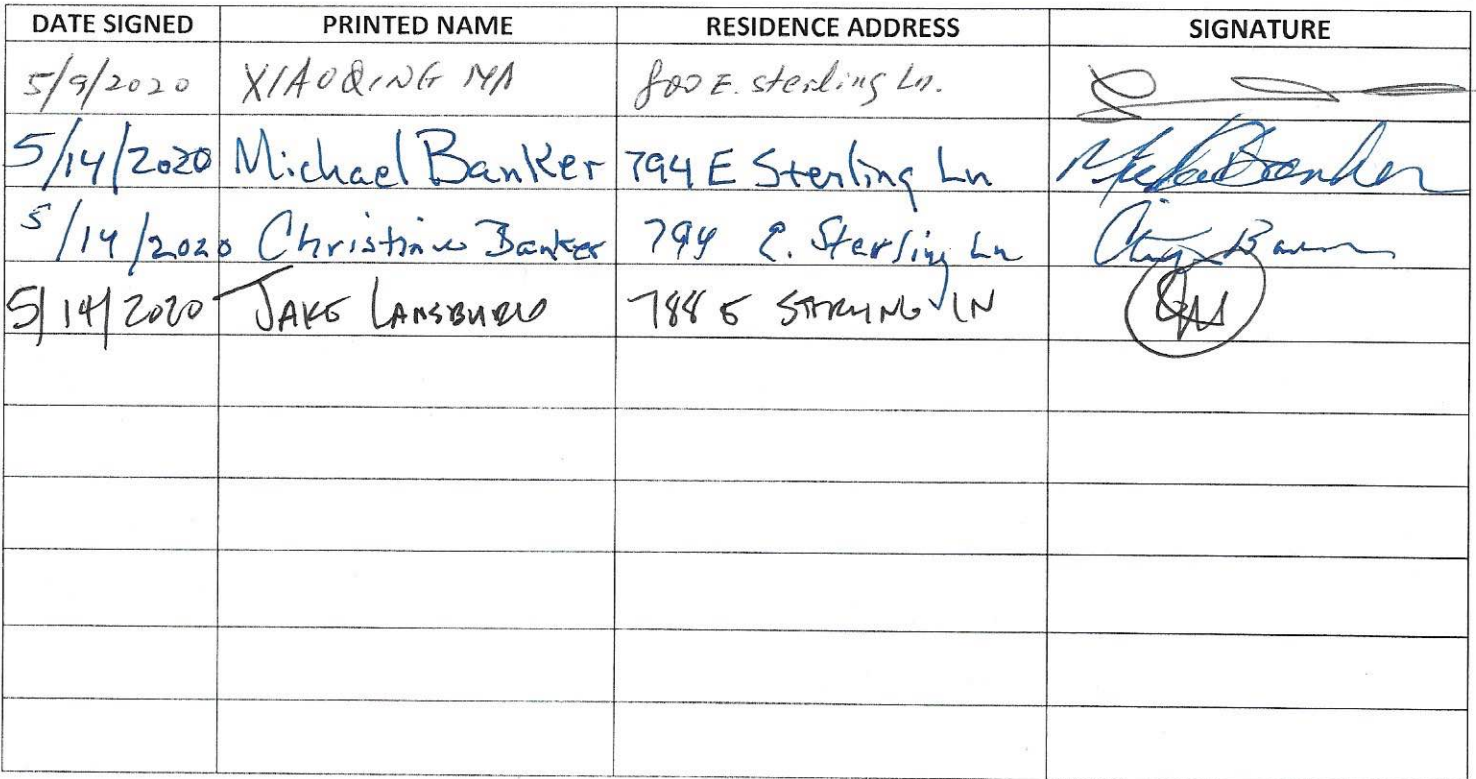 DATE SIGNED PRINTED NAME RESIDENCE ADDRESS SIGNATURE
5/9/2020 XIAOQING MA 800 E. sterling Ln.
5/14/2020 Michael Banker 794 E Sterling Ln
5/14/2020 Banker 794 E. Sterling Ln
5/14/2020 JAKE 788 E STERLING LN